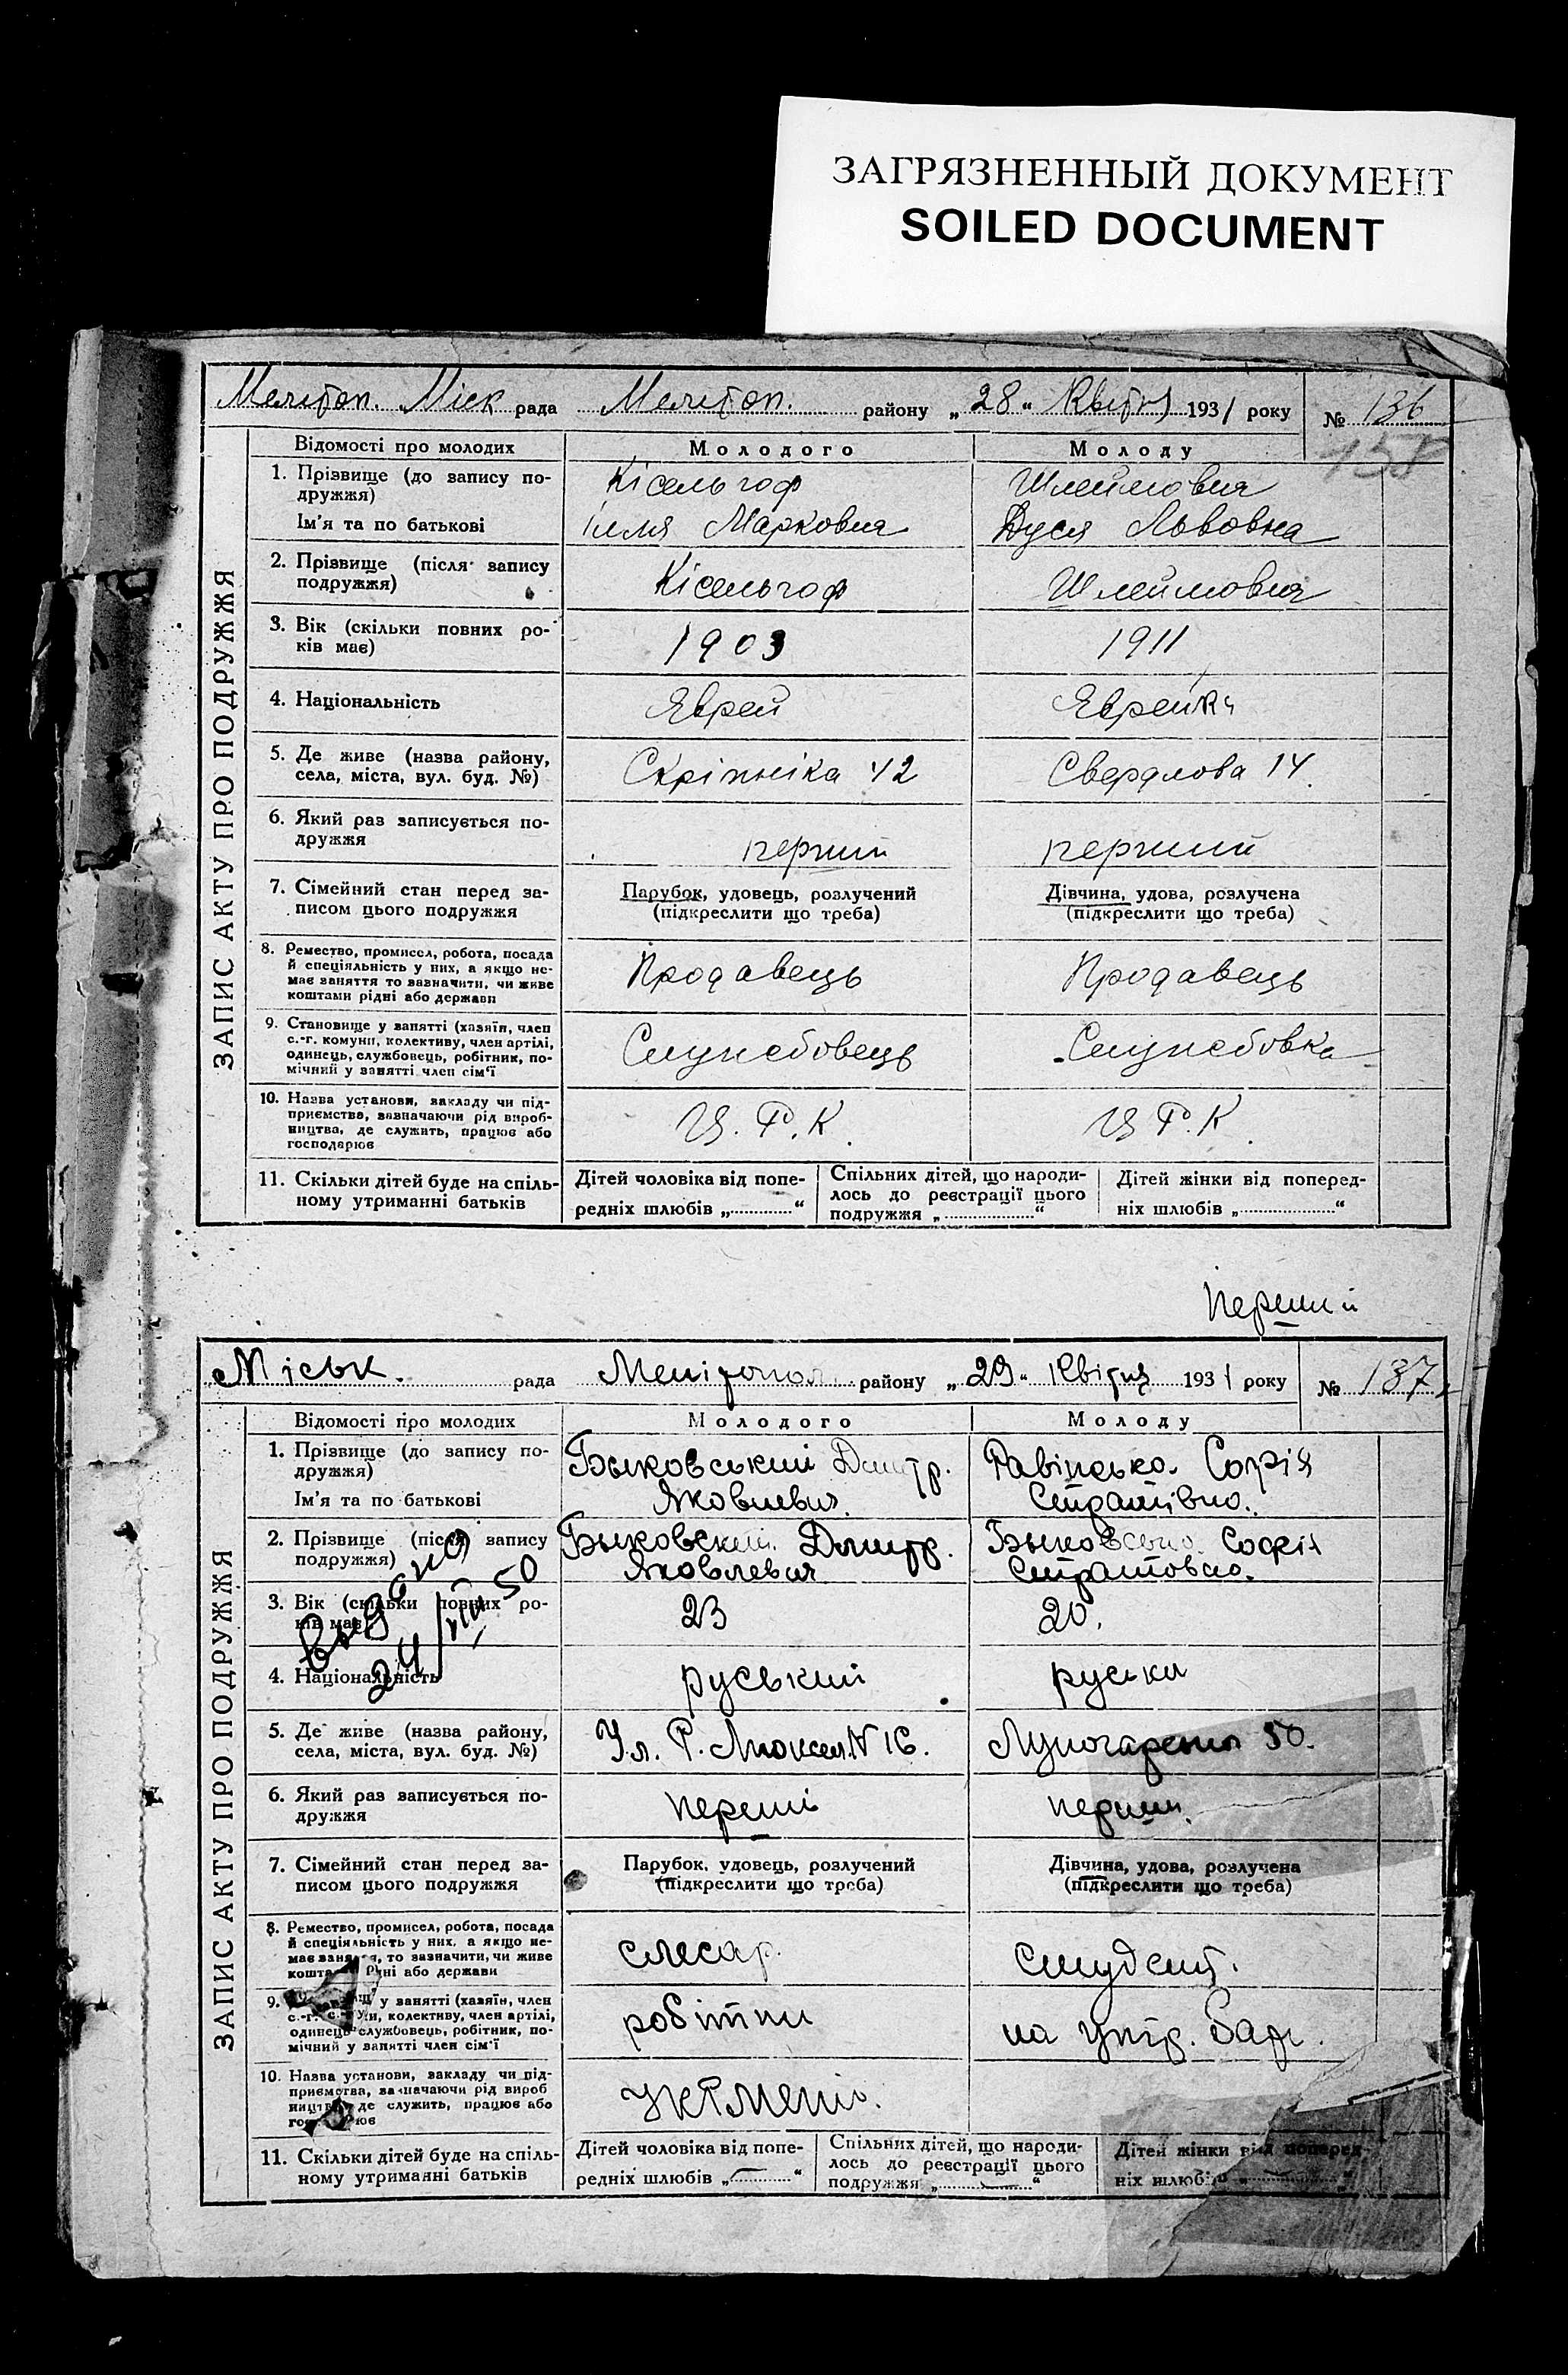 ЗАГРЯЗНЕННЫЙ ДОКУМЕНТ
SOILED DOCUMENT
Мелітоп. Міск рада Мелітоп. району „28“ Квітня 1931 року № 136
158
ЗАПИС АКТУ ПРО ПОДРУЖЖЯ
Відомості про молодих Молодого Молоду
1. Прізвище (до запису по-
дружжя) Кісельгоф Шлеймович
Ім'я та по батькові Ілля Маркович Дуся Львовна
2. Прізвище (після запису
подружжя) Кісельгоф Шлеймович
3. Вік (скільки повних ро-
ків має) 1903 1911
4. Національність Еврей Еврейка
5. Де живе (назва району,
села, міста, вул. буд. №) Скріпніка 42 Свердлова 14
6. Який раз записується по-
дружжя перший перший
7. Сімейний стан перед за- Парубок, удовець, розлучений Дівчина, удова, розлучена
писом цього подружжя (підкреслити що треба) (підкреслити що треба)
8. Ремество, промисел, робота, посада
й спеціяльність у них, а якщо не-
має заняття то зазначити, чи живе
коштами рідні або держави Продавець Продавець
9. Становище у занятті (хазяїн, член
с.-г. комуни, колективу, член артілі,
одинець, службовець, робітник, по-
мічний у занятті член сім'ї Службовець Службовка
10. Назва установи, закладу чи під-
приємства, зазначаючи рід вироб-
ництва, де служить, працює або
господарює Ц. Р. К. Ц Р. К.
11. Скільки дітей буде на спіль- Дітей чоловіка від попе- Спільних дітей, що народи- Дітей жінки від поперед-
ному утриманні батьків редніх шлюбів „ “ лось до реєстрації цього ніх шлюбів „ “
подружжя „ “
Перший
Міськ. рада Мелітопол. району „29“ Квітня 1931 року № 137
ЗАПИС АКТУ ПРО ПОДРУЖЖЯ
Відомості про молодих Молодого Молоду
1. Прізвище (до запису по-
дружжя) Быковський Дмитр. Софія
Ім'я та по батькові Яковлевич
2. Прізвище (після запису
подружжя) Быковский Дмитр. Софія
Яковлевич
3. Вік (скільки повних ро-
ків має) 23 20.
Видано
24/VIII 50
4. Національність руський руська
5. Де живе (назва району,
села, міста, вул. буд. №) Ул. Р. Люксем. N 16. Луночарсько 50.
6. Який раз записується по-
дружжя перші перши
7. Сімейний стан перед за- Парубок, удовець, розлучений Дівчина, удова, розлучена
писом цього подружжя (підкреслити що треба) (підкреслити що треба)
8. Ремество, промисел, робота, посада
й спеціяльність у них, а якщо не-
має заняття, то зазначити, чи живе
коштами рідні або держави слесар студент.
9. у занятті (хазяїн, член
с.-г. комуни, колективу, член артілі,
одинець службовець, робітник, по-
мічний у занятті член сім'ї робітни на утр.
10. Назва установи, закладу чи під-
приємства, зазначаючи рід вироб
ництва де служить, працює або
господарює
11. Скільки дітей буде на спіль- Дітей чоловіка від попе- Спільних дітей, що народи- Дітей жінки від поперед-
ному утриманні батьків редніх шлюбів „—“ лось до реєстрації цього ніх шлюбів „—“
подружжя „—“